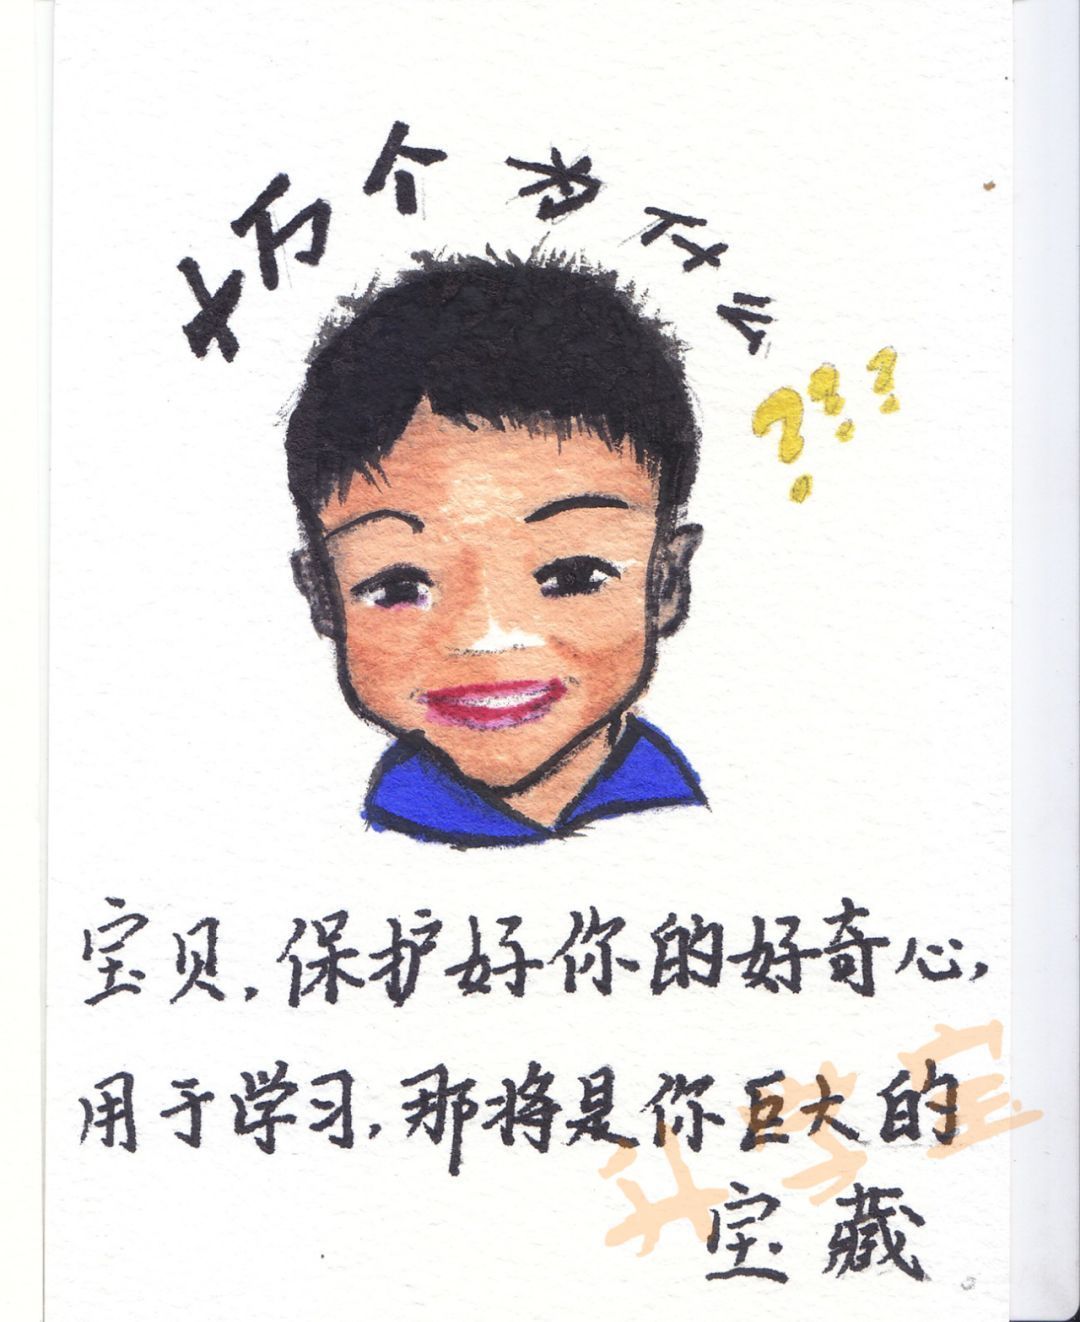 十万个为什么
???
宝贝,保护好你的好奇心,
用于学习,那将是你巨大的
宝藏
升学宝